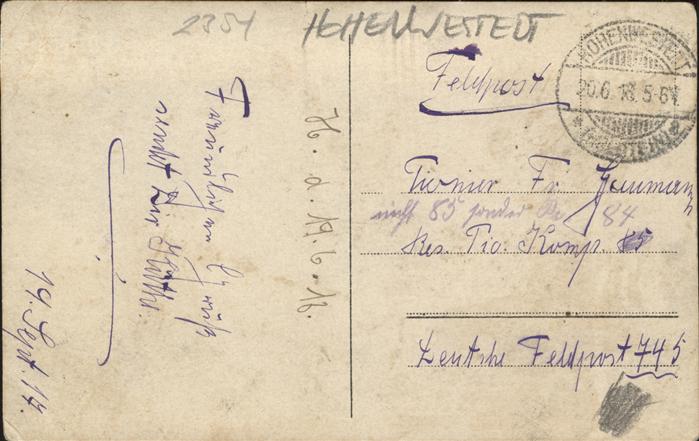 2354 HOHENWESTEDT
HOHENWESTEDT
20.6.18.5-6N
* (HOLSTEIN)
Feldpost
Pionier Fr.
nicht 85 sonder 84
Res. Pio. Komp. 85
Deutsche Feldpost 745
H. d. 19.6.18.
Freundlichen Gruß
sendet Dir
19. Sept. 17.